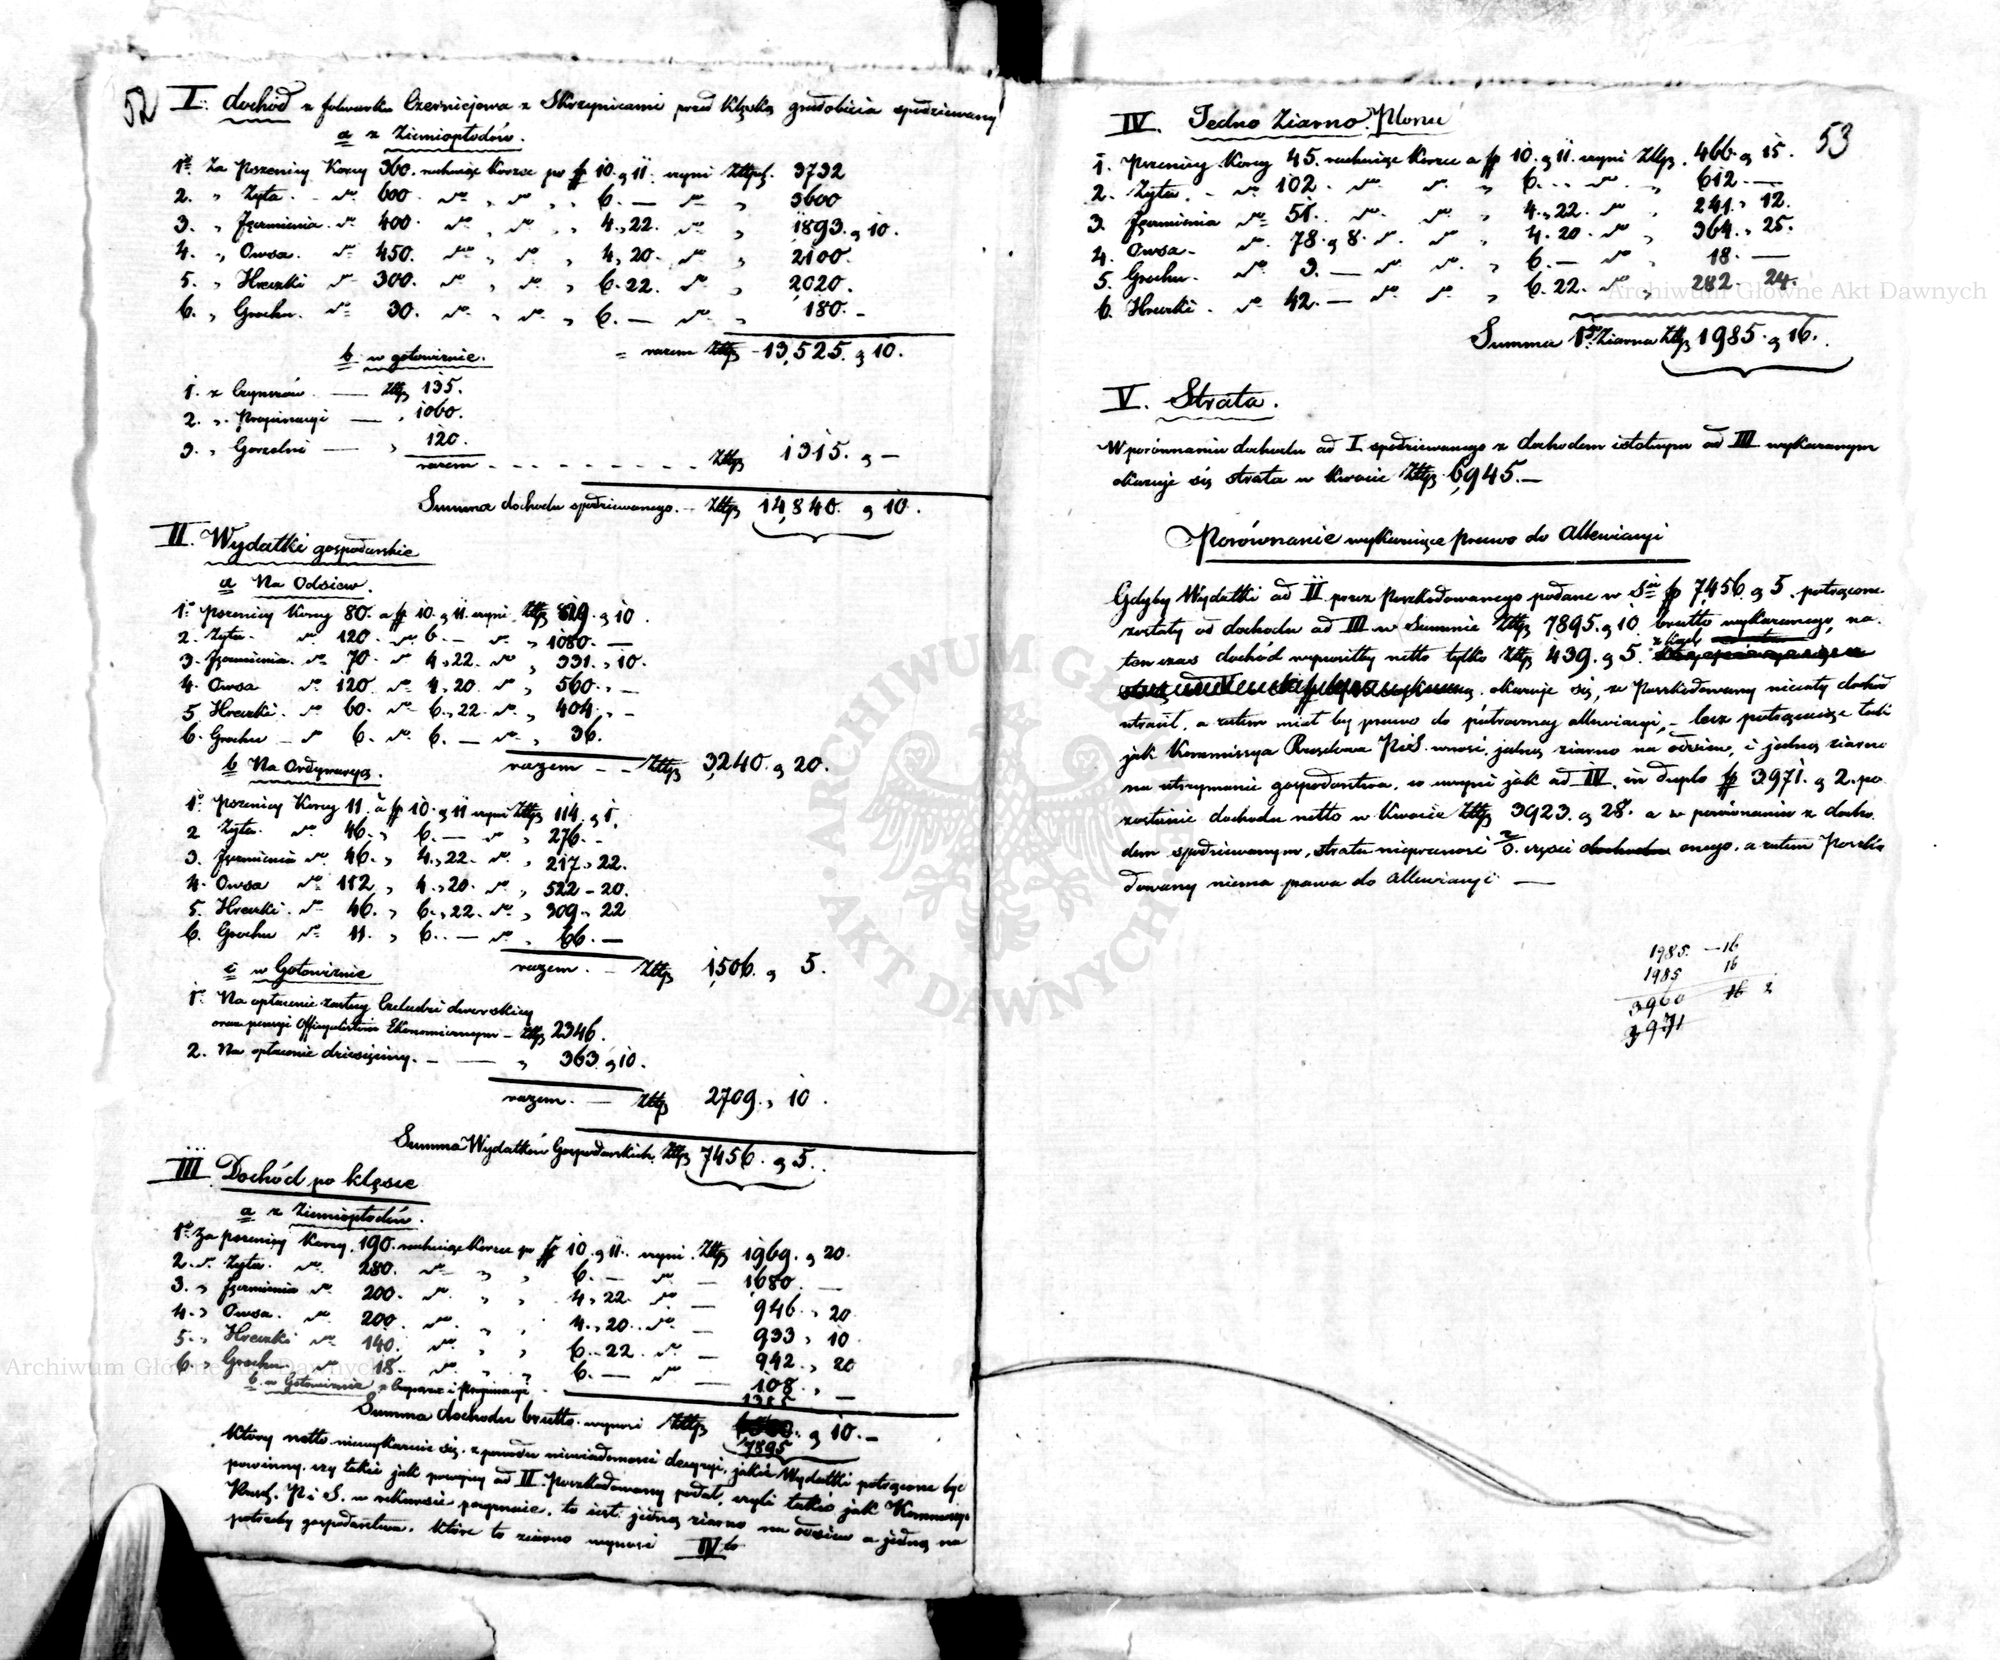 52
I. dochód z folwarku Czerniejowa z Skrzynicami przed klęską gradobicia spodziewany
a z Ziemiopłodów.
1o Za Pszenicy Korcy 360. rachując korzec po fp 10. g 11. czyni Złtpl. 3732
2. „ Żyta. do 600 do „ do „ „ 6. — do „ 3600
3. „ Jęczmienia do 400 do „ do „ „ 4. „ 22. do „ 1893. g 10.
4. „ Owsa. do 450. do „ do „ 4. „ 20. do „ 2100.
5. „ Hreczki do 300. do „ do „ 6. 22. do „ 2020.
6. „ Grochu. do 30. do „ do „ 6. — do „ 180. -
= razem Złtp 13,525. g 10.
b w gotowiznie.
1. z Czynszów. — Złtp 135.
2. „ Propinacyi — „ 1060.
3. „ Gorzelni — „ 120.
razem - - - - - - - - Złtp 1315. g —
Summa dochodu spodziewanego. - Złtp 14,840. g 10.
II. Wydatki gospodarskie
a Na Odsiew.
1o pszenicy Korcy 80. a fp 10. g 11. czyni Złtp 829. g 10.
2. Żyta. do 120. do 6. — do „ 1080. —
3. Jęczmienia. do 70. do 4. 22. do „ 331. „ 10.
4. Owsa do 120. do 4. 20. do „ 560. „ —
5. Hreczki. do 60. do 6. „ 22. do „ 404. „ -
6. Grochu — do 6. do 6. — do „ 36.
razem - - Złtp 3,240. g 20.
b Na Ordynaryą.
1o Pszenicy Korcy 11. à fp 10. g 11 czyni Złtp 114. g 1.
2 Żyta. do 46. „ 6. — do „ 276. -
3. Jęczmienia do 46. „ 4. „ 22. do „ 217 „ 22.
4. Owsa do 112. „ 4. „ 20. do „ 522 - 20.
5. Hreczki. do 46. „ 6. „ 22. do „ 309 „ 22
6. Grochu do 11. „ 6. — do „ 66. —
razem. - Złtp 1,506. g 5.
c w Gotowiznie
1o Na opłacenie zasług Czeladzi dworskiey
oraz pensyi Officyalistom Ekonomicznym - Złtp 2346.
2. Na opłacenie dziesięciny. - — „ 363. g 10.
razem. — Złtp 2709. „ 10.
Summa Wydatków Gospodarskich. Złtp 7456. g 5.
III Dochód po klęsce
a z Ziemiopłodów.
1o Za pszenicy Korcy. 190. rachując korzec po fp 10. g 11. czyni. Złtp 1969. g 20.
2. „ Żyta. do 280. do „ „ 6. — do — 1680. —
3. „ Jęczmienia do 200. do „ „ 4. „ 22. do — 946. „ 20
4. „ Owsa. do 200. do „ „ 4. „ 20. do — 933 „ 10
5. „ Hreczki do 140. do „ „ 6. 22. do — 942. „ 20
6. „ Grochu. do 18. do „ „ 6. — do — 108. „ —
b. w Gotowiznie z Czynszu i Propinacyi - 1315
Summa dochodu brutto. wynosi Złtp g 10. -
7895
Który netto niewykazuie się. z powodu niewiadomości decyzyi, jakie Wydatki potrącone być
powinny. czy takie jak powyżey ad II. Poszkodowany podał, czyli takie jak Kommissya
Rząd. P. i S. w rekursie . to iest: jedno ziarno na odsiew a jedno na
potrzeby gospodarstwa. które to ziarno wynosi IVto
53
IV. Jedno Ziarno Plonu
1. Pszenicy Korcy 45. rachując korzec a fp 10. g 11. czyni Złtp. 466. g 15.
2. Żyta. - do 102. do do „ 6. .. do „ 612. —
3. Jęczmienia do 51. do do „ 4. „ 22. do „ 241. „ 12.
4. Owsa - do 78. g 8. do do „ 4. 20. do „ 364. „ 25.
5. Grochu. do 3. — do do „ 6. — do „ 18. —
6. Hreczki. do 42. — do do „ 6. 22. do „ 282. 24.
Summa 1go Ziarna Złtp 1985. g 16.
V. Strata.
W porównaniu dochodu ad I spodziewanego z dochodem istotnym ad III wykazanym
okazuje się strata w kwocie Złtp. 6,945. —
Porównanie wykazujące prawo do Allewiacyi
Gdyby Wydatki ad II przez Poszkodowanego podane w Sie fp 7,456. g 5. potrącone
zostały od dochodu ad III w Summie Złtp 7895. g 10. brutto wykazanego, na-
tenczas dochód wynosiłby netto tylko Złtp 439. g 5. z kąd
okazuje się, że Poszkodowany niecały dochód
utracił, a zatem miał by prawo do allewiacyi, - lecz potrącając tak
jak Kommissya Rządowa P. i S. wnosi, jedno ziarno na odsiew, i jedno ziarno
na utrzymanie gospodarstwa, co uczyni jak ad IV. in duplo fp 3971. g 2. po-
zostanie dochodu netto w kwocie Złtp 3923. g 28. a w porównaniu z docho-
dem spodziewanym, strata nieprzenosi 2/3. części onego, a zatem Poszko-
dowany niema prawa do Allewiacyi —
1985. — 16
1985 16
3960 16 2
3971
Archiwum Główne Akt Dawnych
Archiwum Główne Akt Dawnych
ARCHIWUM GŁÓWNE AKT DAWNYCH